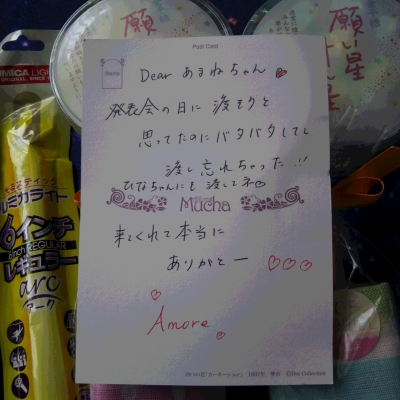 Post Card
Stamp
Dear あまねちゃん
発表会の日に 渡そうと
思ってたのにバタバタしてし
渡し忘れちゃった!!
ひなちゃんにも渡してネ
Mucha
来てくれて本当に
ありがとー
Amore
願い星
願い星
LUMICA LIGHT
ルミカライト
6インチ
6inch REGULAR
レギュラー
arc
アーク